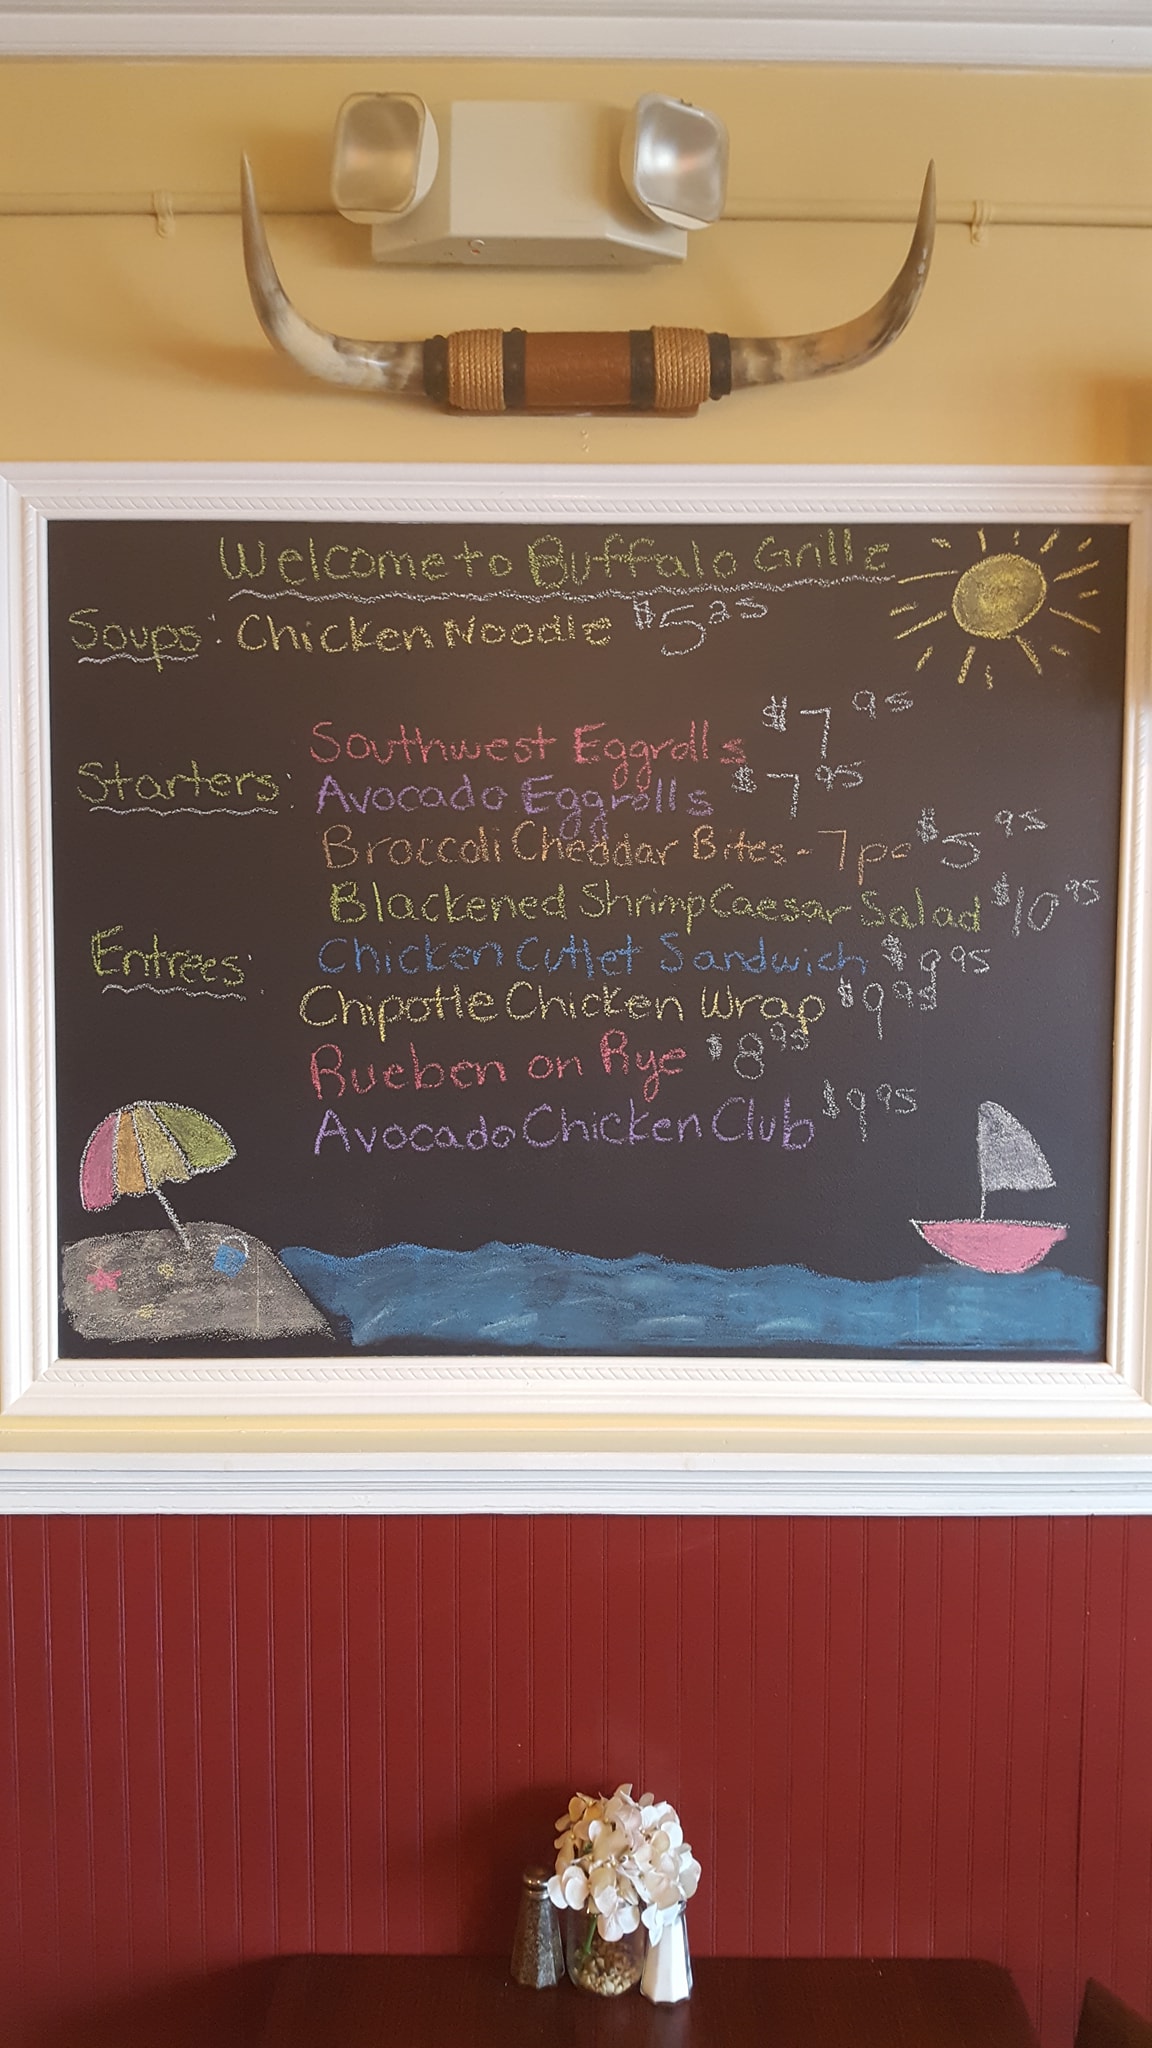 Welcome to Buffalo Grille
Soups: Chicken Noodle $5.25
Starters:
Southwest Eggrolls $7.95
Avocado Eggrolls $7.95
Broccoli Cheddar Bites - 7pc $5.95
Entrees:
Blackened Shrimp Caesar Salad $10.95
Chicken Cutlet Sandwich $9.95
Chipotle Chicken Wrap $9.95
Rueben on Rye $8.95
Avocado Chicken Club $9.95